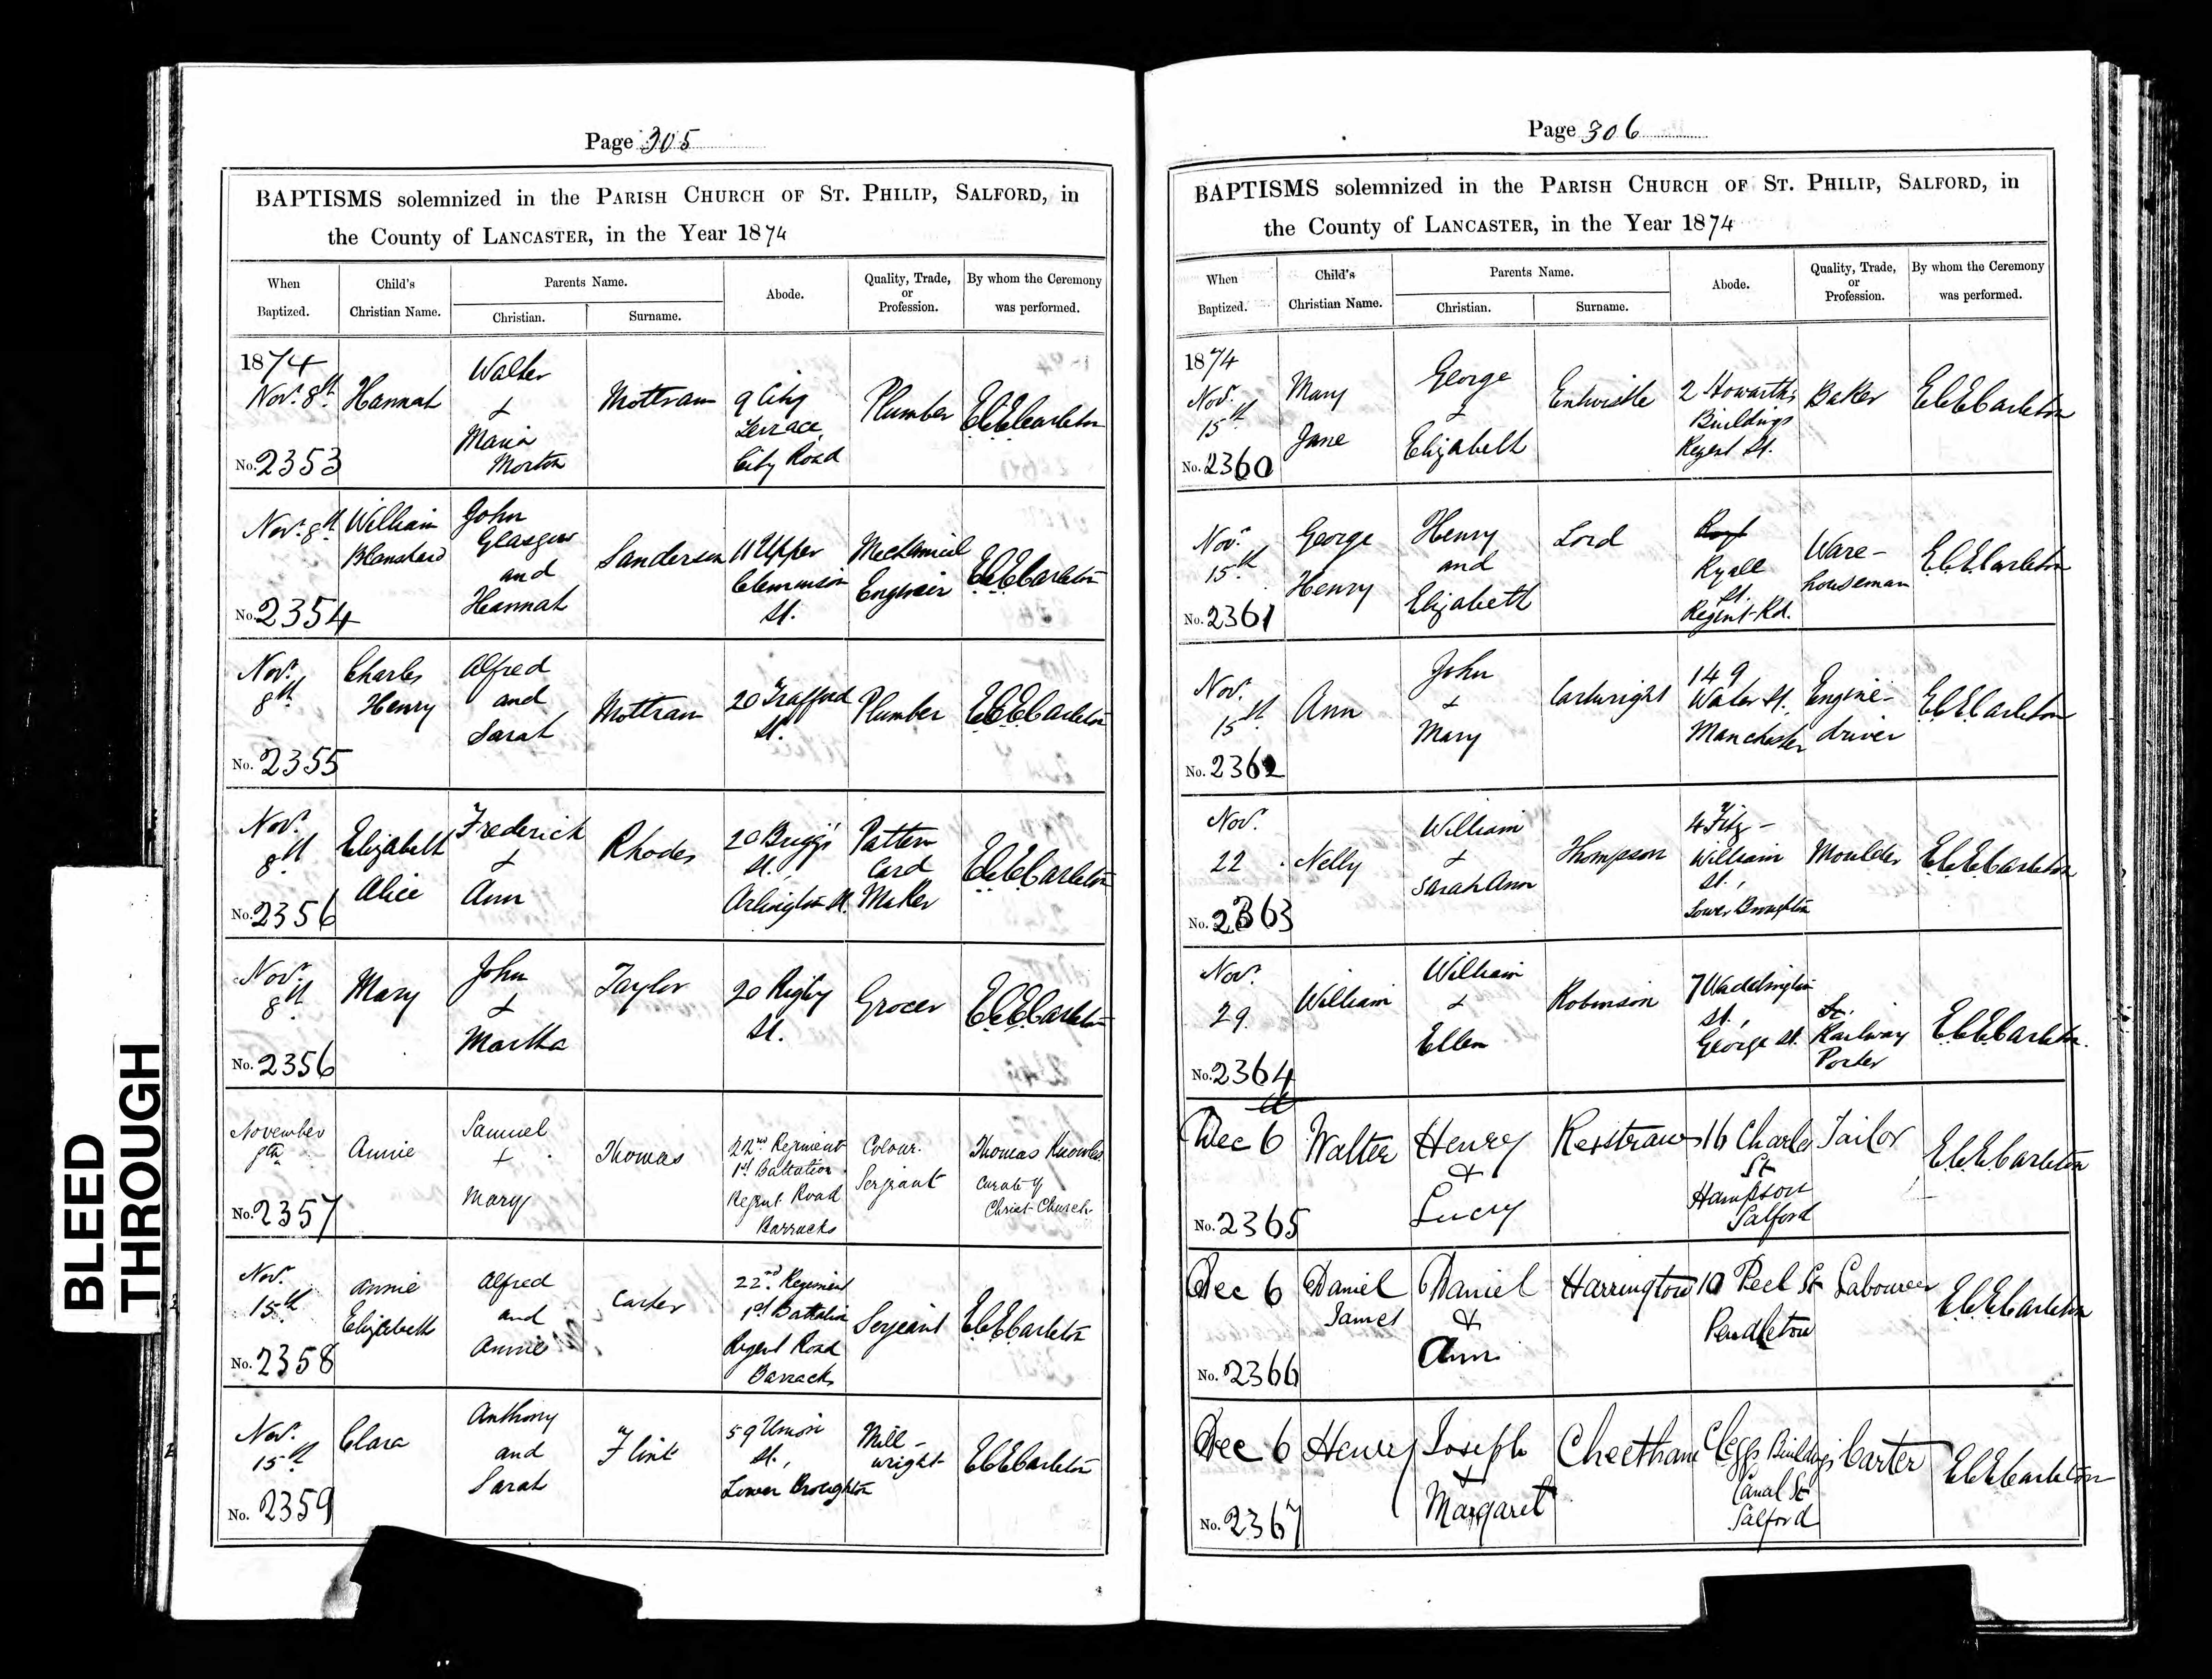 BLEED
THROUGH
Page 305
BAPTISMS solemnized in the PARISH CHURCH OF ST. PHILIP, SALFORD, in
the County of LANCASTER, in the Year 1874
When Baptized. Child's Christian Name. Parents Name. Christian. Surname. Abode. Quality, Trade, or Profession. By whom the Ceremony was performed.
1874
Nov. 8th Hannah
Walter
&
Maria
Morton
Mottram
9 City
Terrace
City Road
Plumber
E.C.E. Carleton
No. 2353
Nov. 8th
William
Blanshard
John
Glasgow
and
Hannah
Sanderson
11 Upper
Cleminson
St.
Mechanical
Engineer
E.C.E. Carleton
No. 2354
Nov.
8th
Charles
Henry
Alfred
and
Sarah
Mottram
20 Trafford
St.
Plumber
E.C.E. Carleton
No. 2355
Nov.
8th
Elizabeth
Alice
Frederick
&
Ann
Rhodes
20 Briggs
St.
Arlington St.
Pattern
Card
Maker
E.C.E. Carleton
No. 2356
Nov.
8th
Mary
John
&
Martha
Taylor
20 Rigby
St.
Grocer
E.C.E. Carleton
No. 2356
November
Annie
Samuel
+
Mary
Thomas
22nd Regiment
1st Battalion
Regent Road
Barracks
Colour.
Serjeant
Thomas Knowles
Curate of
Christ Church
No. 2357
Nov.
15th
Annie
Elizabeth
Alfred
and
Annie
Carter
22nd Regiment
1st Battalion
Regent Road
Barracks
Serjeant
E.C.E. Carleton
No. 2358
Nov.
15th
Clara
Anthony
and
Sarah
Flint
59 Union
St.,
Lower Broughton
Mill-
wright
E.C.E. Carleton
No. 2359
Page 306
BAPTISMS solemnized in the PARISH CHURCH OF ST. PHILIP, SALFORD, in
the County of LANCASTER, in the Year 1874
When Baptized. Child's Christian Name. Parents Name. Christian. Surname. Abode. Quality, Trade, or Profession. By whom the Ceremony was performed.
1874
Nov.
15th
Mary
Jane
George
&
Elizabeth
Entwistle
2 Howarth's
Buildings
Regent St.
Baker
E.C.E. Carleton
No. 2360
Nov.
15th
George
Henry
Henry
and
Elizabeth
Lord
Ryall
St.
Regent Rd.
Ware-
houseman
E.C.E. Carleton
No. 2361
Nov.
15th
Ann
John
&
Mary
Cartwright
149
Water St.
Manchester
Engine-
driver
E.C.E. Carleton
No. 2362
Nov.
22
Nelly
William
&
Sarah Ann
Thompson
4 Fitz-
William
St.,
Lower Broughton
Moulder
E.C.E. Carleton
No. 2363
Nov.
29
William
William
&
Ellen
Robinson
7 Waddington
St.,
George St.
Railway
Porter
E.C.E. Carleton.
No. 2364
Dec 6
Walter
Henry
&
Lucy
Kerstraw
16 Charles
St
Hampson
Salford
Tailor
E.C.E. Carleton
No. 2365
Dec 6
Daniel
James
Daniel
&
Ann
Harrington
10 Peel St
Pendleton
Labourer
E.C.E. Carleton
No. 2366
Dec 6
Henry
Joseph
&
Margaret
Cheetham
Cleggs Buildings
Canal St
Salford
Carter
E.C.E. Carleton
No. 2367